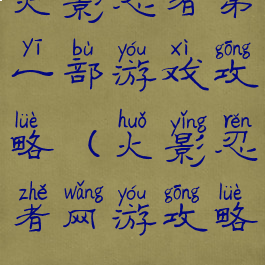 火影忍者第
yī bù yóu xì gōng
一部游戏攻
lüè huǒ yǐng rěn
略（火影忍
zhě wǎng yóu gōng lüè
者网游攻略